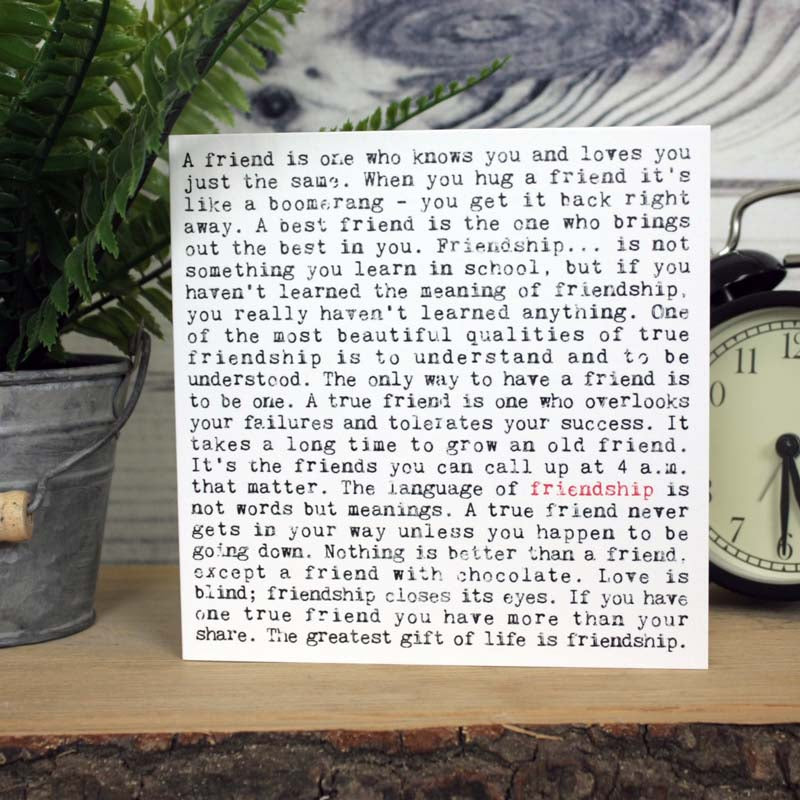 A friend is one who knows you and loves you
just the same. When you hug a friend it's
like a boomerang - you get it back right
away. A best friend is the one who brings
out the best in you. Friendship... is not
something you learn in school, but if you
haven't learned the meaning of friendship,
you really haven't learned anything. One
of the most beautiful qualities of true
friendship is to understand and to be
understood. The only way to have a friend is
to be one. A true friend is one who overlooks
your failures and tolerates your success. It
takes a long time to grow an old friend.
It's the friends you can call up at 4 a.m.
that matter. The language of friendship is
not words but meanings. A true friend never
gets in your way unless you happen to be
going down. Nothing is better than a friend,
except a friend with chocolate. Love is
blind; friendship closes its eyes. If you have
one true friend you have more than your
share. The greatest gift of life is friendship.
11 12
10
7 6